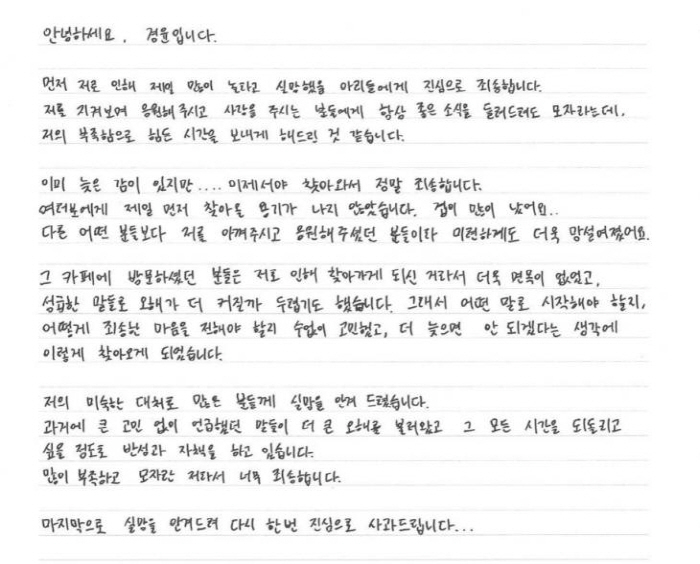 안녕하세요. 경윤입니다.
먼저 저로 인해 제일 많이 놀라고 실망했을 아리들에게 진심으로 죄송합니다.
저를 지켜보며 응원해주시고 사랑을 주시는 분들에게 항상 좋은 소식을 들려드려도 모자라는데,
저의 부족함으로 힘든 시간을 보내게 해드린 것 같습니다.
이미 늦은 감이 있지만.... 이제서야 찾아와서 정말 죄송합니다.
여러분에게 제일 먼저 찾아올 용기가 나지 않았습니다. 겁이 많이 났어요..
다른 어떤 분들보다 저를 아껴주시고 응원해주셨던 분들이라 미련하게도 더욱 망설여졌어요.
그 카페에 방문하셨던 분들은 저로 인해 찾아가게 되신 거라서 더욱 면목이 없었고,
섣급한 말들로 오해가 더 커질까 두렵기도 했습니다. 그래서 어떤 말로 시작해야 할지,
어떻게 죄송한 마음을 전해야 할지 수없이 고민했고, 더 늦으면 안 되겠다는 생각에
이렇게 찾아오게 되었습니다.
저의 미숙한 대처로 많은 분들께 실망을 안겨 드렸습니다.
과거에 큰 고민 없이 언급했던 말들이 더 큰 오해를 불러왔고 그 모든 시간을 되돌리고
싶을 정도로 반성과 자책을 하고 있습니다.
많이 부족하고 모자란 저라서 너무 죄송합니다.
마지막으로 실망을 안겨드려 다시 한번 진심으로 사과드립니다...